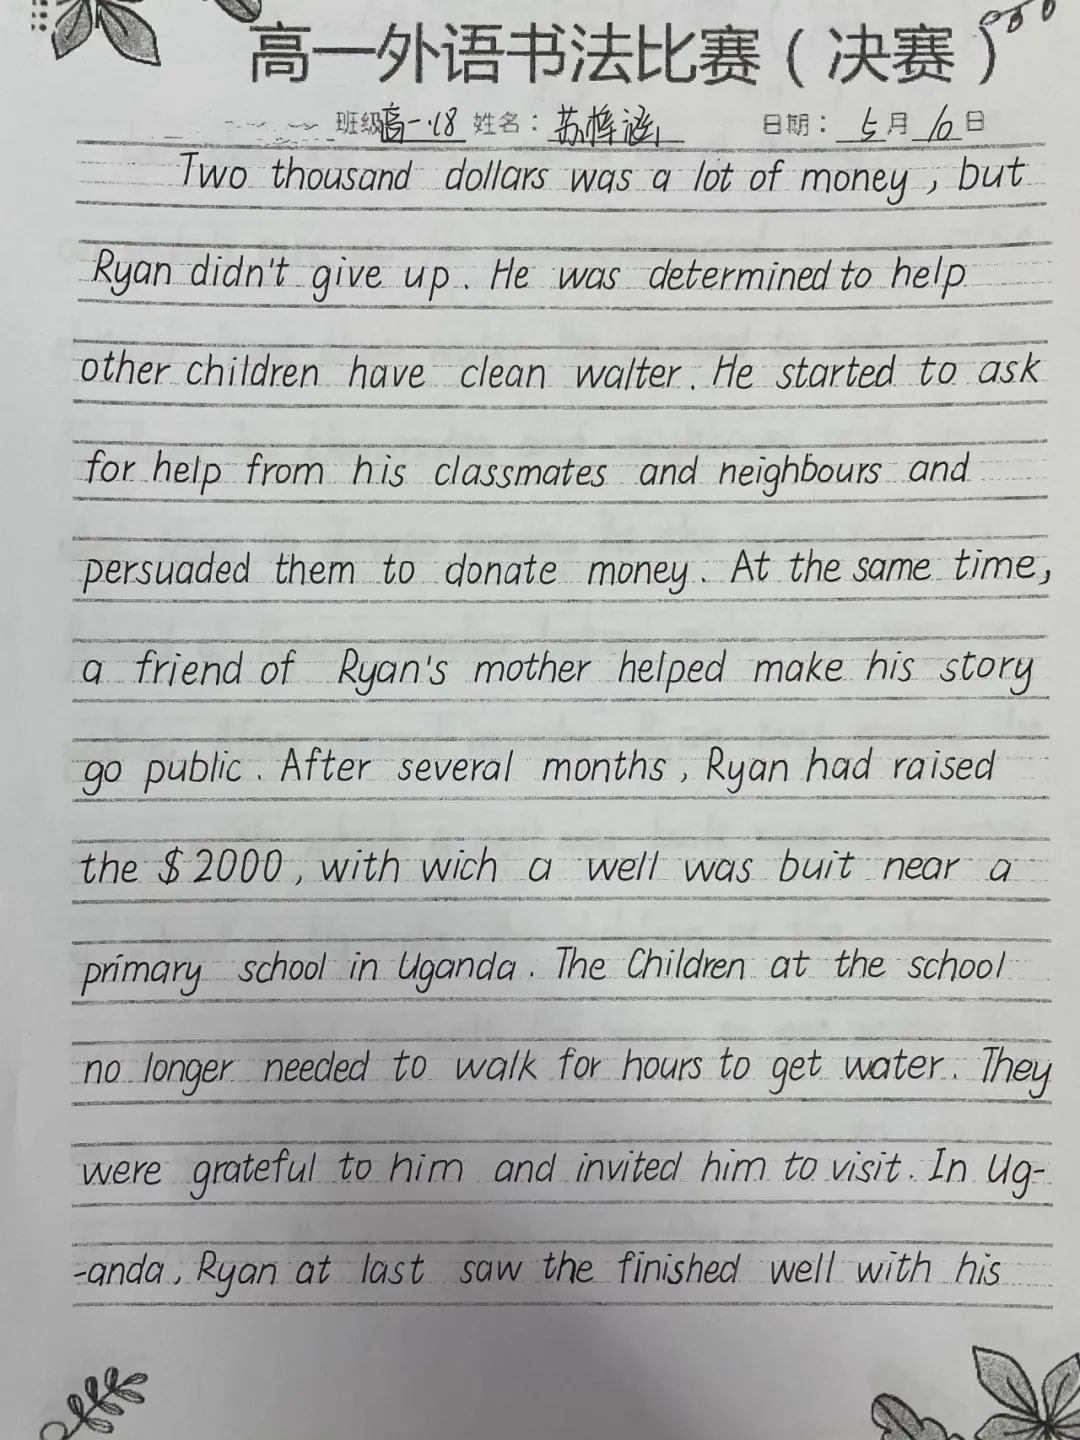 高一外语书法比赛（决赛）
班级高一.18 姓名：苏梓涵 日期：5月10日
Two thousand dollars was a lot of money, but
Ryan didn't give up. He was determined to help
other children have clean walter. He started to ask
for help from his classmates and neighbours and
persuaded them to donate money. At the same time,
a friend of Ryan's mother helped make his story
go public. After several months, Ryan had raised
the $2000, with wich a well was buit near a
primary school in Uganda. The Children at the school
no longer needed to walk for hours to get water. They
were grateful to him and invited him to visit. In Ug-
-anda, Ryan at last saw the finished well with his